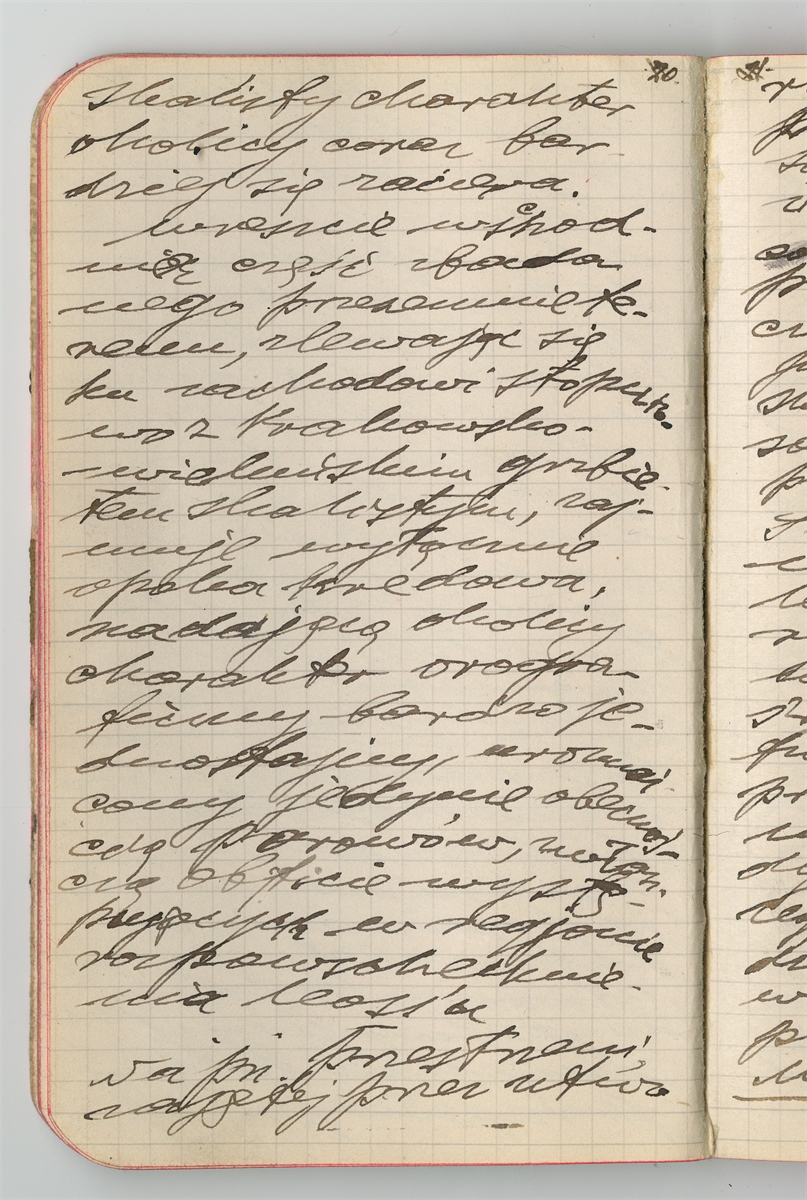 70.
skalisty charakter
okolicy coraz bar-
dziej się zaciera.
wreszcie wschod-
nią część zbada
nego przezemnie te-
renu, zlewając się
ku zachodowi stopnio-
wo z Krakowsko-
-wieluńskim grzbie-
tem skalistym, zaj-
muje wyłącznie
opoka kredowa,
nadająca okolicy
charakter orogra-
ficzny bardzo je-
dnostajny, urozmai-
cony jedynie obecnoś-
cią parowów, zwłasz-
cza obficie wystę-
pujących w regjonie
rozpowszechnie-
nia leoss'u
Na pł. przestrzeni,
zajętej przez utwo